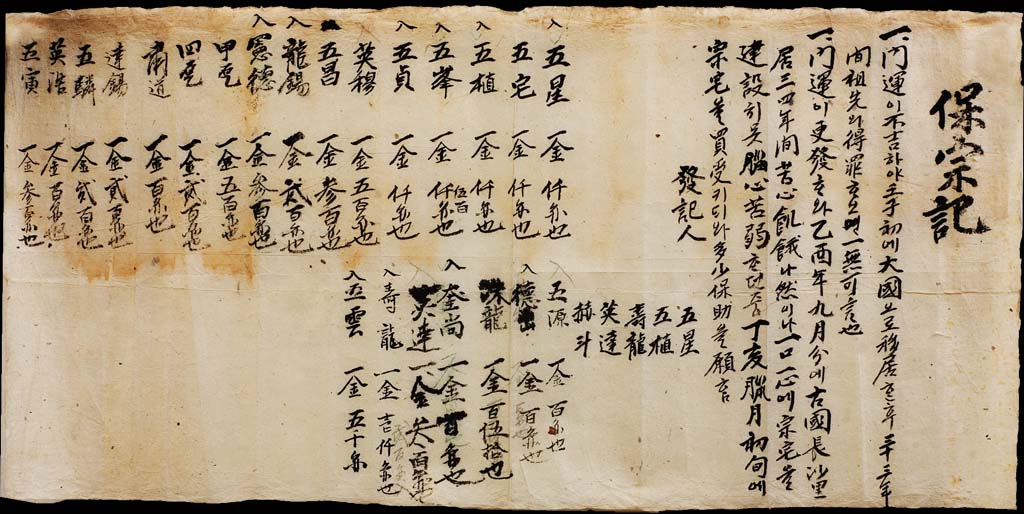 保宗記
一. 門運이不吉하야壬子初에大國으로移居한후三十三年
間祖先의得罪함은一無可言也
一. 門運이更發함으乙酉年九月分에古國長沙里
居三四年間苦心飢餓나然이나一口一心에宗宅을
建設키로腦心苦弱하던중丁亥臘月初旬에
宗宅을買受키되와多少保助을願함
發記人
五星
五植
壽龍
英達
赫斗
入 五星 一金 仟뉴也
五宅 一金 仟뉴也
入 五植 一金 仟뉴也
入 五峯 一金 仟五百뉴也
入 五貞 一金 仟뉴也
英穆 一金 五百뉴也
五昌 一金 參百뉴也
入 龍錫 一金 貳百뉴也
入 憲德 一金 參百뉴也
甲 一金 五百뉴也
四 一金 貳百뉴也
道 一金 百뉴也
達錫 一金 貳百뉴也
五麟 一金 貳百뉴也
英浩 一金 百뉴也
五寅 一金 參百뉴也
入 五源 一金 百뉴也
入 德 一金 百뉴也
洙龍 一金 百伍拾也
入 奎尚 一金 百뉴也
英達 一金 百뉴也
入 壽龍 一金 壱仟뉴也
入 五雲 一金 五十뉴